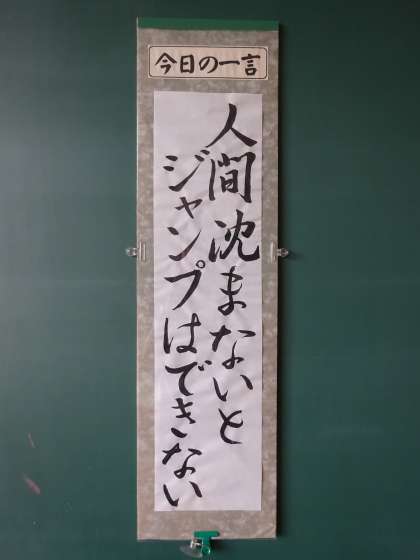 今日の一言
人間沈まないと
ジャンプはできない